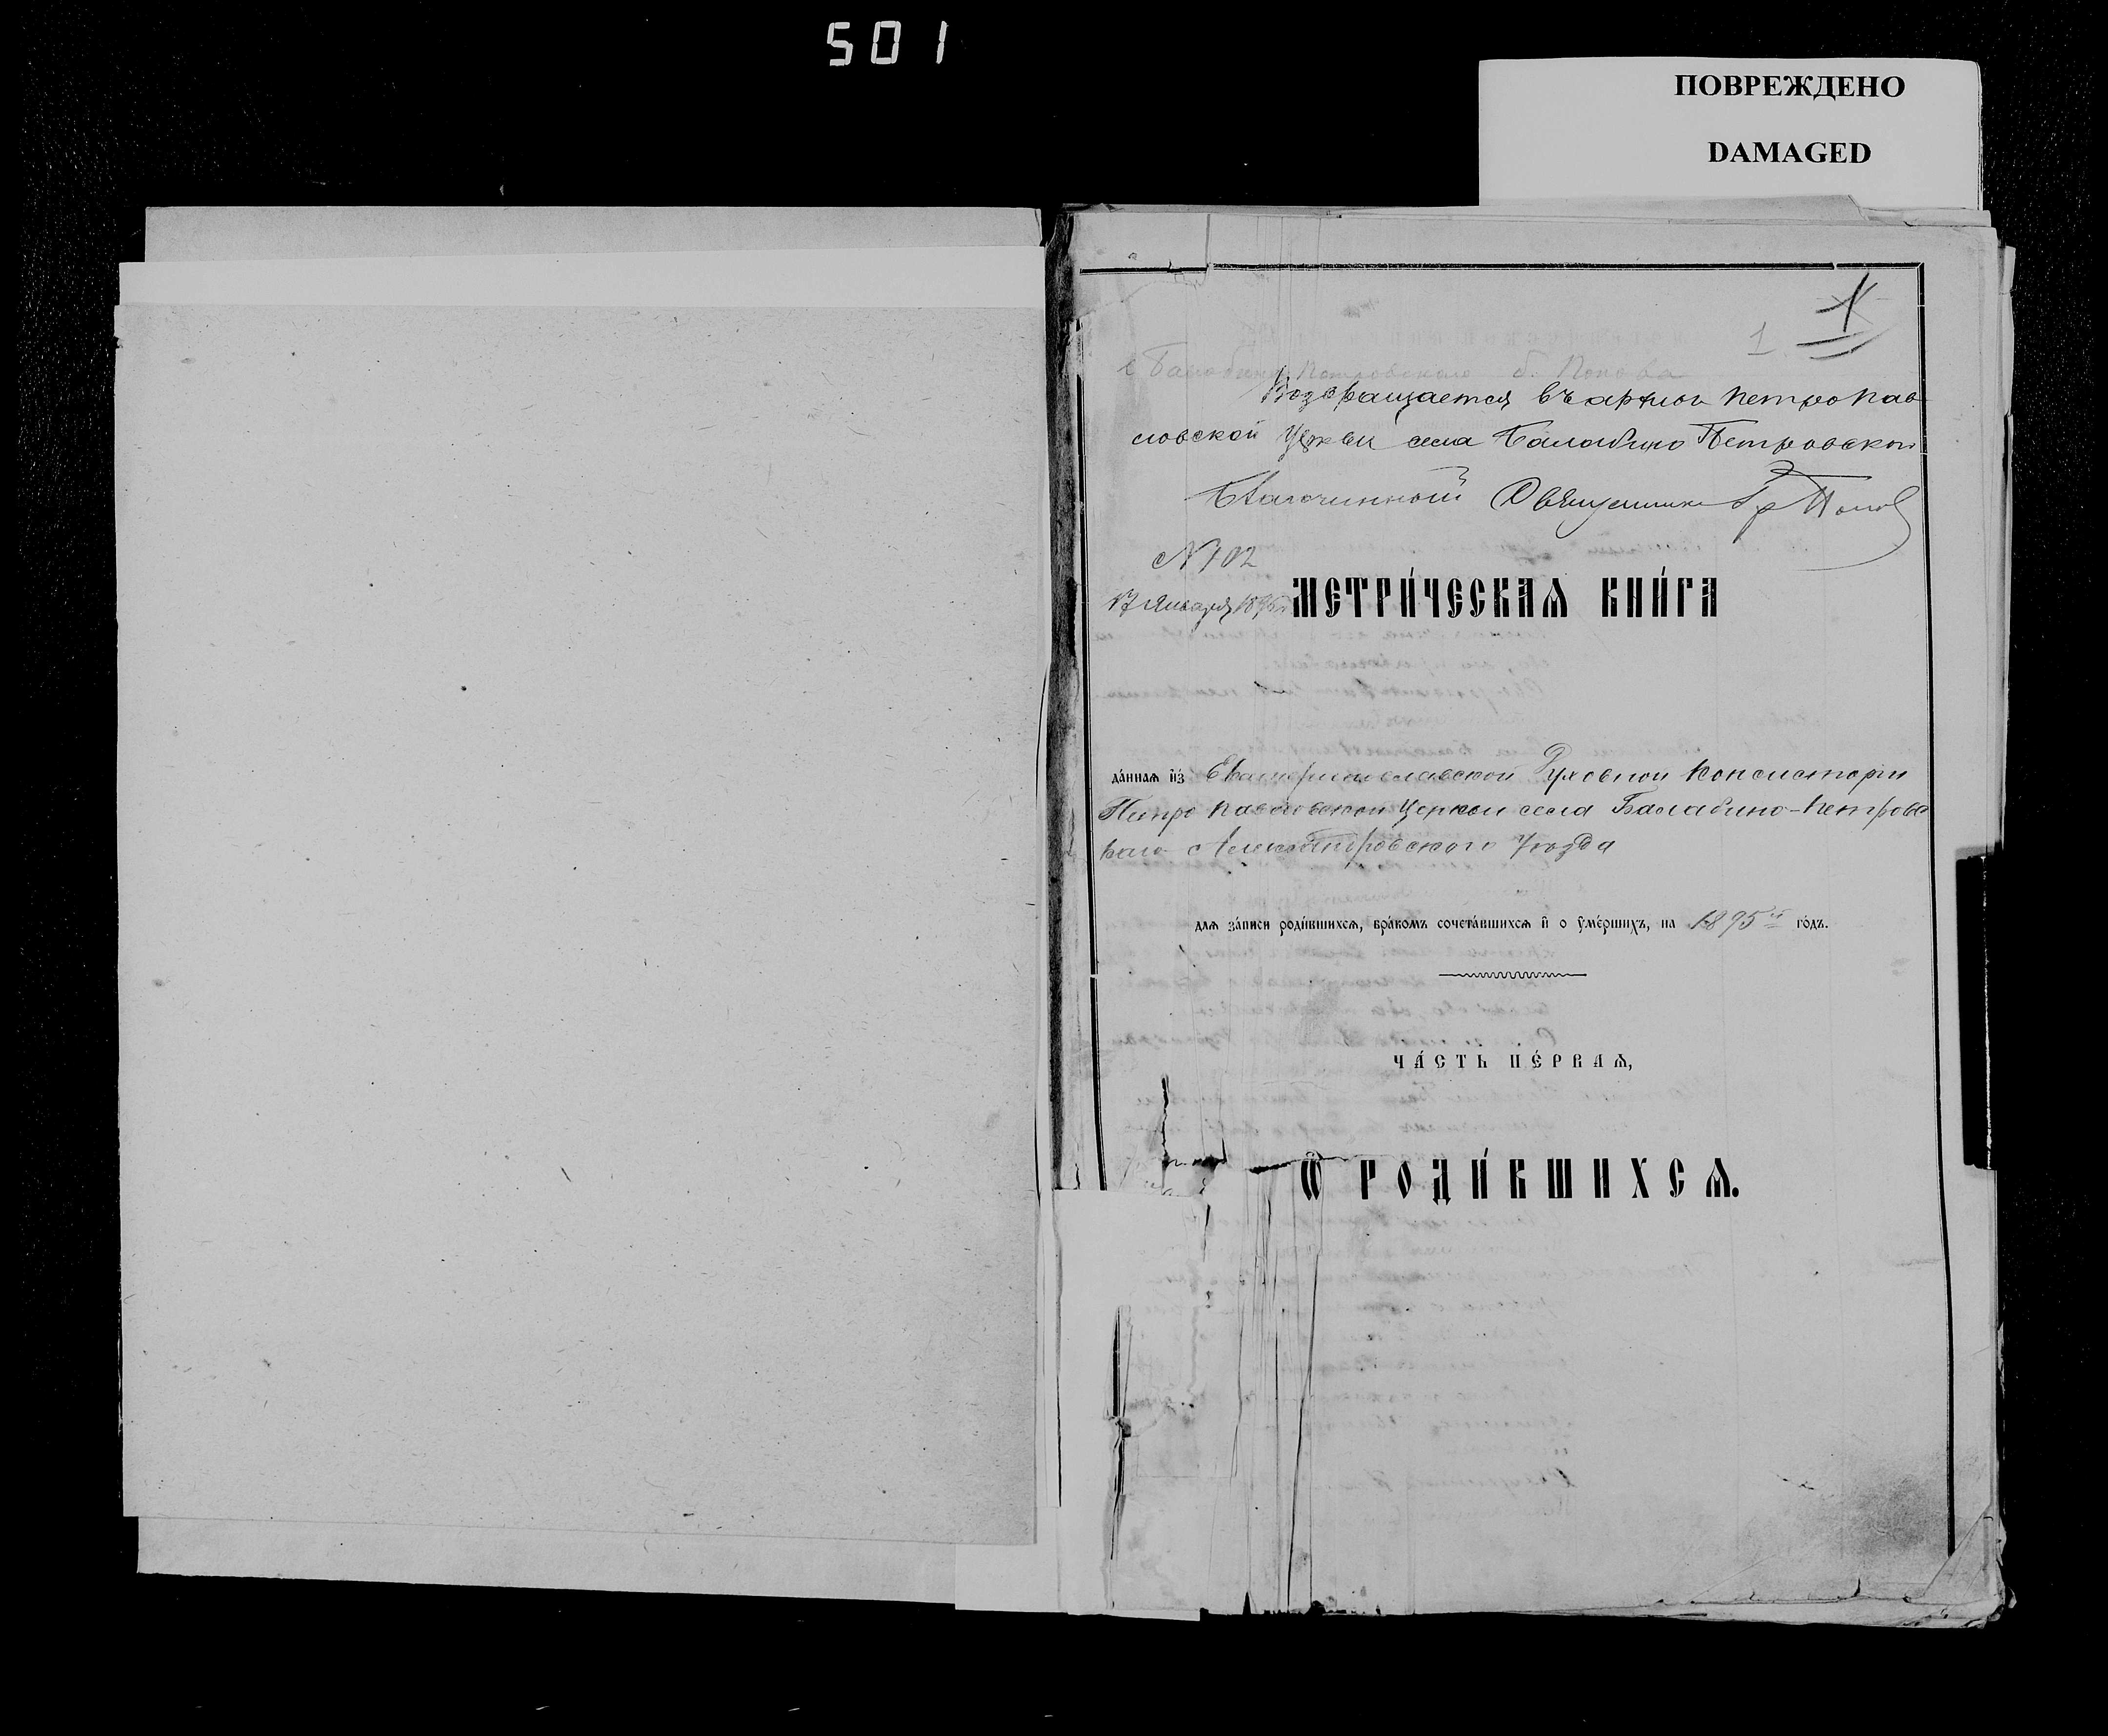 501
ПОВРЕЖДЕНО
DAMAGED
1
1
с Балабино Петровского б. Попова
Возвращается въ архивъ Петропав
ловской Церкви села Балабино Петровскаго
Благочинный Священникъ Гр Попов
№ 102
17 Января 1896 г.
МЕТРИ́ЧЕСКАѦ КНИ́ГА
да́ннаѧ и҆з̾ Екатеринославской Духовной Консисторіи
Петро Павловской Церкви села Балабино-Петровс
каго Александровскаго Уѣзда
длѧ за́писи роди́вшихсѧ, бра́комъ сочета́вшихсѧ и҆ о ᲂу҆ме́ршихъ, на 1895й го́дъ.
ЧА́СТЬ ПЕ́РВАѦ,
Ѽ РОДИ́ВШИХСѦ.